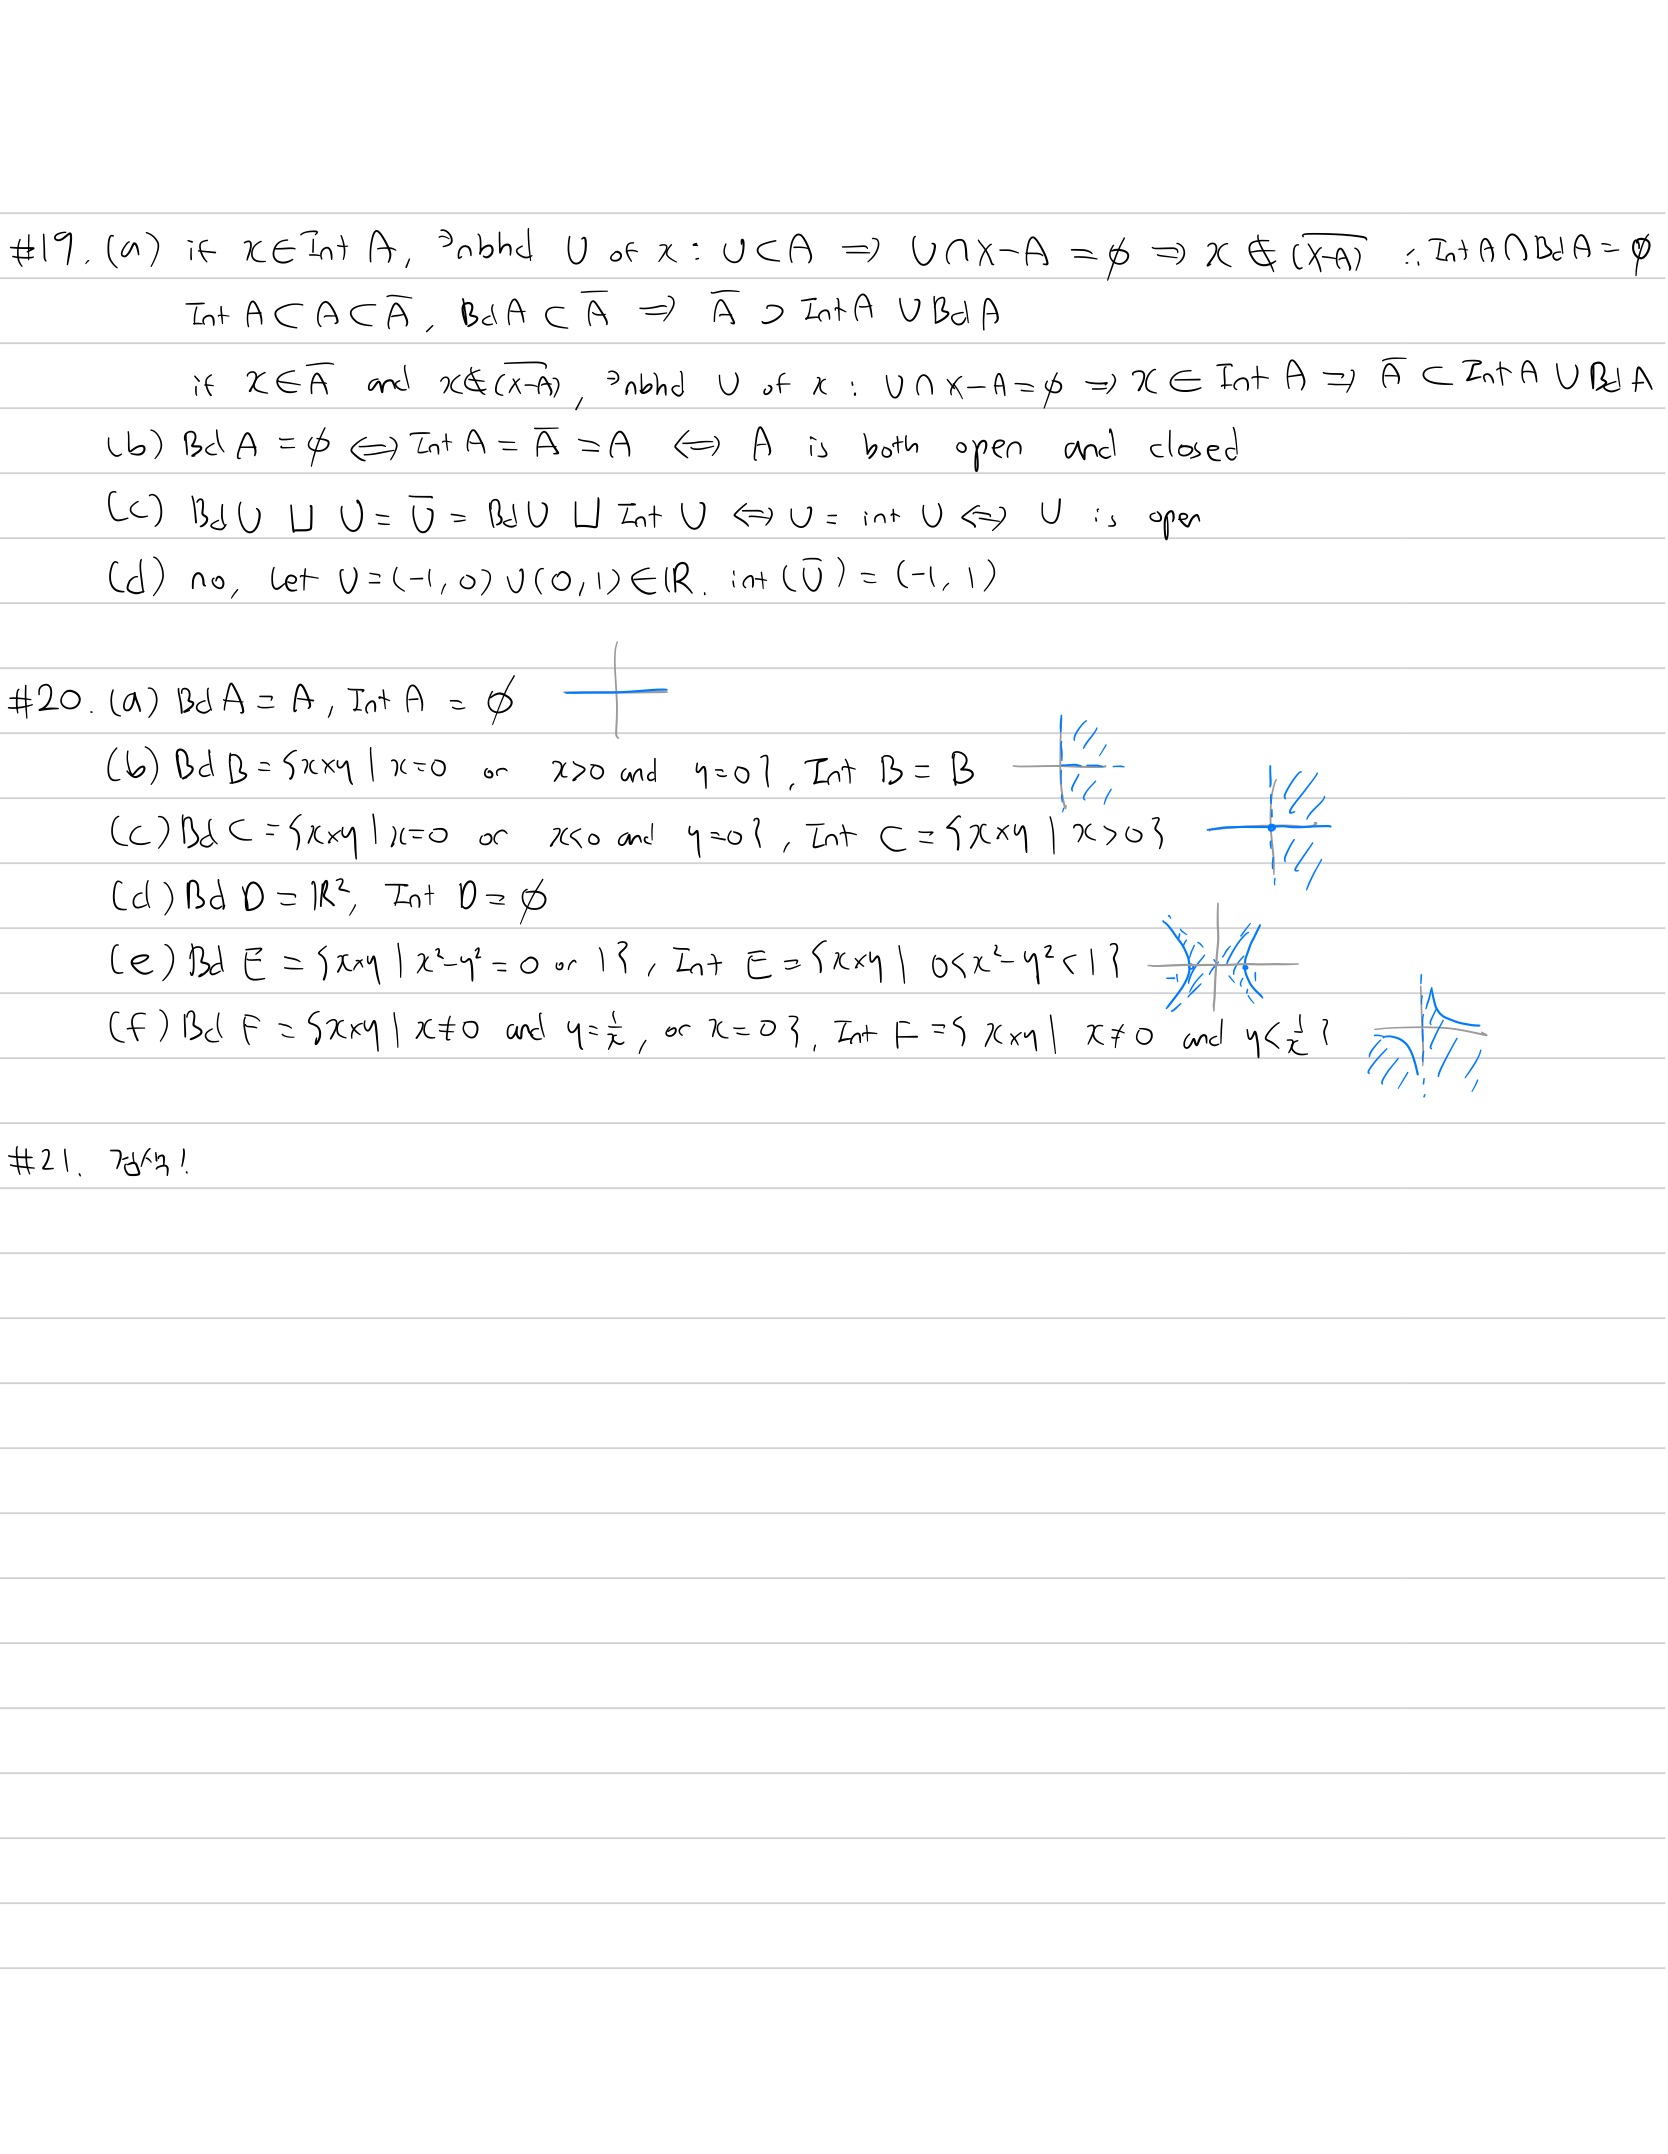 #19. (a) if x∈Int A, ∃nbhd U of x : U⊂A ⇒ U∩X-A = ϕ ⇒ x ∉ (X̅-̅A̅) ∴ Int A∩Bd A = ϕ
Int A⊂A⊂A̅, Bd A⊂A̅ ⇒ A̅ ⊃ Int A ∪ Bd A
if x∈A̅ and x∉(X̅-̅A̅), ∃nbhd U of x : U∩X-A=ϕ ⇒ x∈ Int A ⇒ A̅ ⊂ Int A ∪ Bd A
(b) Bd A = ϕ ⇔ Int A = A̅ = A ⇔ A is both open and closed
(c) Bd U ⊔ U = U̅ = Bd U ⊔ Int U ⇔ U = int U ⇔ U is open
(d) no, let U=(-1, 0)∪(0, 1)∈ℝ. int(U̅) = (-1, 1)
#20. (a) Bd A = A, Int A = ϕ
(b) Bd B = {x×y | x=0 or x>0 and y=0}, Int B = B
(c) Bd C = {x×y | x=0 or x<0 and y=0}, Int C = {x×y | x>0}
(d) Bd D = ℝ², Int D = ϕ
(e) Bd E = {x×y | x²-y² = 0 or 1}, Int E = {x×y | 0<x²-y²<1}
(f) Bd F = {x×y | x≠0 and y=1/x, or x=0}, Int F = {x×y | x≠0 and y<1/x}
#21. 검색!